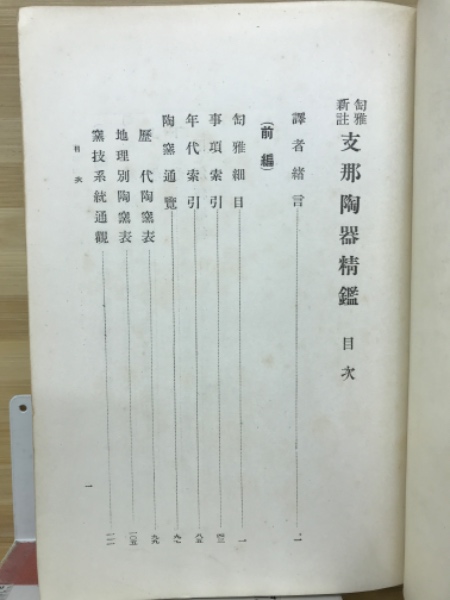 匋雅新註 支那陶器精鑑 目次
譯者緒言 一
(前編)
匋雅細目 一
事項索引 四三
年代索引 八五
陶窯通覽 九七
歷代陶窯表 九九
地理別陶窯表 一〇五
窯技系統通觀 一一一
目次
一